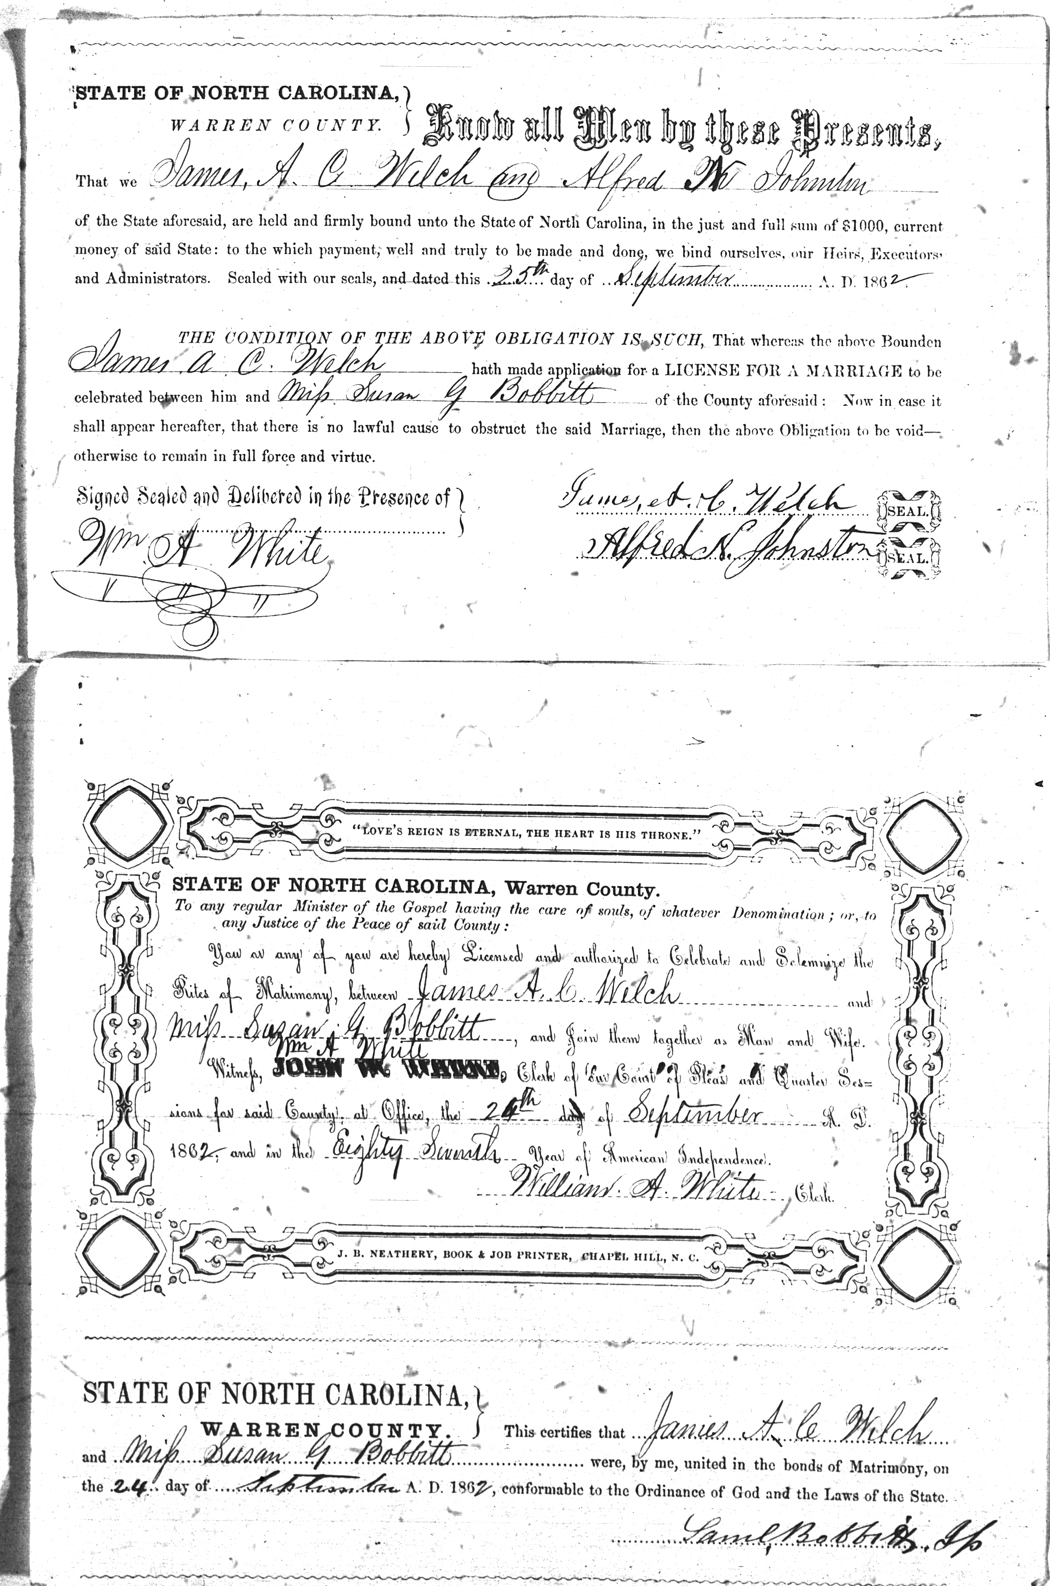 STATE OF NORTH CAROLINA,
WARREN COUNTY.
Know all Men by these Presents,
That we James, A. C. Welch and Alfred N Johnston
of the State aforesaid, are held and firmly bound unto the State of North Carolina, in the just and full sum of $1000, current
money of said State: to the which payment, well and truly to be made and done, we bind ourselves, our Heirs, Executors
and Administrators. Sealed with our seals, and dated this 25th day of September A. D. 1862
THE CONDITION OF THE ABOVE OBLIGATION IS SUCH, That whereas the above Bounden
James A C. Welch hath made application for a LICENSE FOR A MARRIAGE to be
celebrated between him and Miss Susan G Bobbitt of the County aforesaid: Now in case it
shall appear hereafter, that there is no lawful cause to obstruct the said Marriage, then the above Obligation to be void—
otherwise to remain in full force and virtue.
Signed Sealed and Delibered in the Presence of
James, A. C. Welch SEAL.
Wm A White
Alfred N. Johnston SEAL.
"LOVE'S REIGN IS ETERNAL, THE HEART IS HIS THRONE."
STATE OF NORTH CAROLINA, Warren County.
To any regular Minister of the Gospel having the care of souls, of whatever Denomination; or, to
any Justice of the Peace of said County:
You or any of you are hereby Licensed and authorized to Celebrate and Solemnize the
Rites of Matrimony, between James A. C. Welch and
Miss Susan G Bobbitt, and Join them together as Man and Wife.
Wm A White
Witness, JOHN W. WHITE, Clerk of Our Court of Pleas and Quarter Ses=
sions for said County, at Office, the 24th day of September A. D.
1862, and in the Eighty Seventh Year of American Independence.
William A. White Clerk.
J. B. NEATHERY, BOOK & JOB PRINTER, CHAPEL HILL, N. C.
STATE OF NORTH CAROLINA,
WARREN COUNTY.
This certifies that James A. C Welch
and Miss Susan G Bobbitt were, by me, united in the bonds of Matrimony, on
the 24 day of September A. D. 1862, conformable to the Ordinance of God and the Laws of the State.
Saml, Bobbitt, Jp